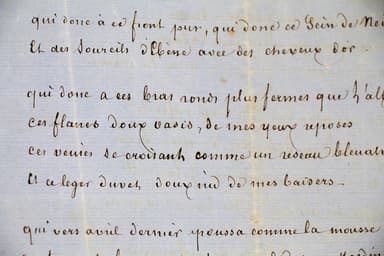 qui donc a ce front pur, qui donc ce Sein de
Et des Sourcils d'Ebène avec des cheveux d'or.
qui donc a ces bras ronds plus fermes que
ces flancs doux oasis, de mes yeux reposés
ces veines se croisant comme un reseau
Et ce leger duvet, doux nid de mes baisers.
qui vers avril dernier poussa comme la mousse